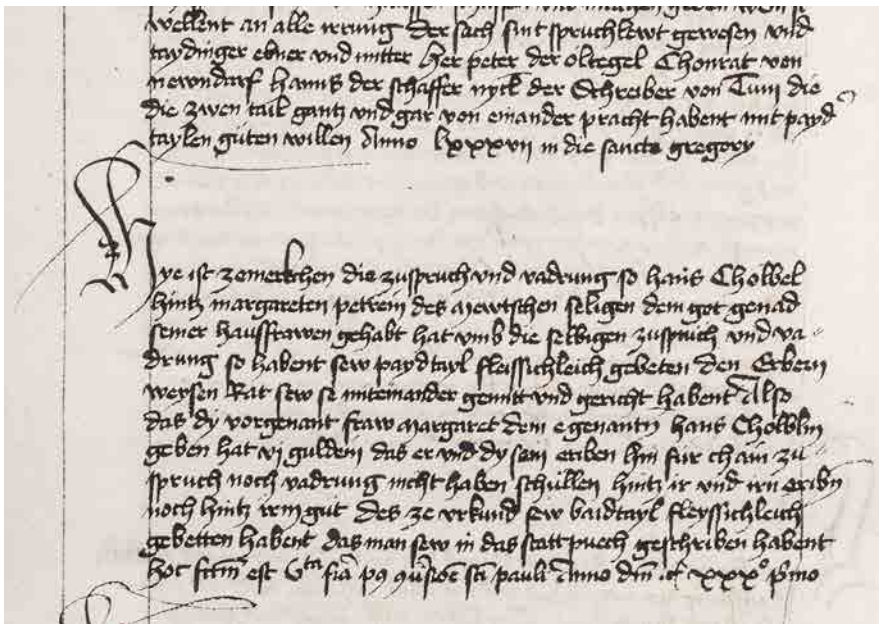 wellent an alle irrung der sach sint spruchlewt gewesen vnd
taydinger ebner vnd mitter her peter der oltegel Chonrat von
newndarf hanns der schaffer nycl der Schreiber von die
die zwen tail gantz vnd gar von einander pracht habent mit payd
taylen guten willen Anno lxxxvii in die sancte gregory
Hye ist zemerkchen die zuspruch vnd vadrung so hans Cholbel
hintz margareten petrein des mewtschen seligen dem got genad
seiner hausfrawen gehabt hat vmb die selbigen zuspruch vnd va-
drung so habent sew payd tayl fleissichleich gebeten den Erbern
weysen Rat sew se miteinander geniitt vnd gericht habent Also
das dy vorgenant fraw margaret dem egenantn hans Cholblin
geben hat vi guldein das er vnd dy sein eriben hin fur chain zu-
spruch noch vadrung nicht haben schullen hintz ir vnd irn eribn
noch hintz irm gut des ze vrkund sew baidtayl fleyssichleich
gebetten habent das man sew in das statpuech geschriben habent
hoc fctm est Vta fia pq sci pauli Anno dm xxxº pmo